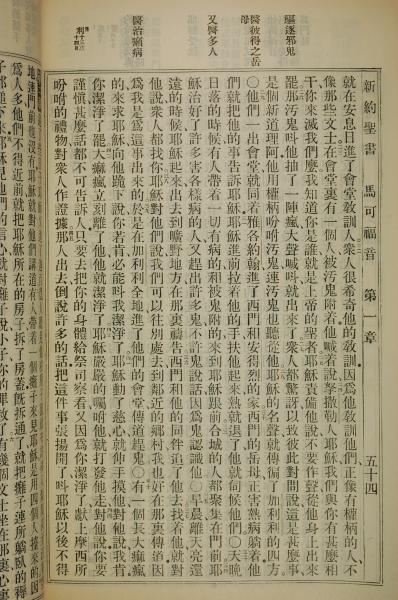 新約聖書 馬可福音 第一章 五十四
驅逐邪鬼
醫彼得之岳
母
又醫多人
醫治癩病
就在安息日進了會堂教訓人衆人很希奇他的教訓因爲他教訓他們正像有權柄的人不
像那些文士在會堂裏有一個人被污鬼附着他喊着說拏撒勒人耶穌我們與你有甚麼相
干你來滅我們麼我知道你是誰就是上帝的聖者耶穌責備他說不要作聲從他身上出來
罷那污鬼叫他抽了一陣瘋大聲喊叫就出來了衆人都驚訝以致彼此對問說這是甚麼事
是個新道理阿他用權柄吩咐污鬼連污鬼也聽從他耶穌的名聲就傳徧了加利利的四方
〇他們一出會堂就同着雅各約翰進了西門和安得烈的家西門的岳母正害熱病躺着他
們就把他的事告訴耶穌耶穌進前拉着他的手扶他起來熱就退了他就伺候他們〇天晚
日落的時候有人帶着一切有病的和被鬼附的來到耶穌跟前合城的人都聚集在門前耶
穌治好了許多害各樣病的人又趕出許多鬼不許鬼說話因爲鬼認識他〇早晨離天亮還
遠的時候耶穌起來出去到曠野地方在那裏禱告西門和他的同伴追了他去找着他就對
他說衆人都找你耶穌對他們說我們可以往別處去到鄰近的鄉村我也好在那裏傳道因
爲我是爲這事出來的於是在加利利全地進了他們的會堂傳道趕鬼〇有一個長大痲瘋
的來求耶穌向他跪下說你若肯必能叫我潔淨了耶穌動了慈心就伸手摸他對他說我肯
你潔淨了罷大痲瘋立刻離了他他就潔淨了耶穌嚴嚴的囑咐他就打發他走對他說你要
謹慎甚麼話都不可告訴人只要去把你的身體給祭司察看又因爲你潔淨了獻上摩西所
吩咐的禮物對衆人作證據那人出去倒說許多的話把這件事張揚開了叫耶穌以後不得
地連門前都沒有耶穌就對他們講道有人帶着一個癱子來見耶穌是用四個人擡來的因
爲人多他們不得近前就把耶穌所在的房子拆了房蓋既拆通了就把癱子連所躺臥的褥
子都縋下來耶穌見他們的信心就對癱子說小子你的罪赦了有幾個文士坐在那裏心裏